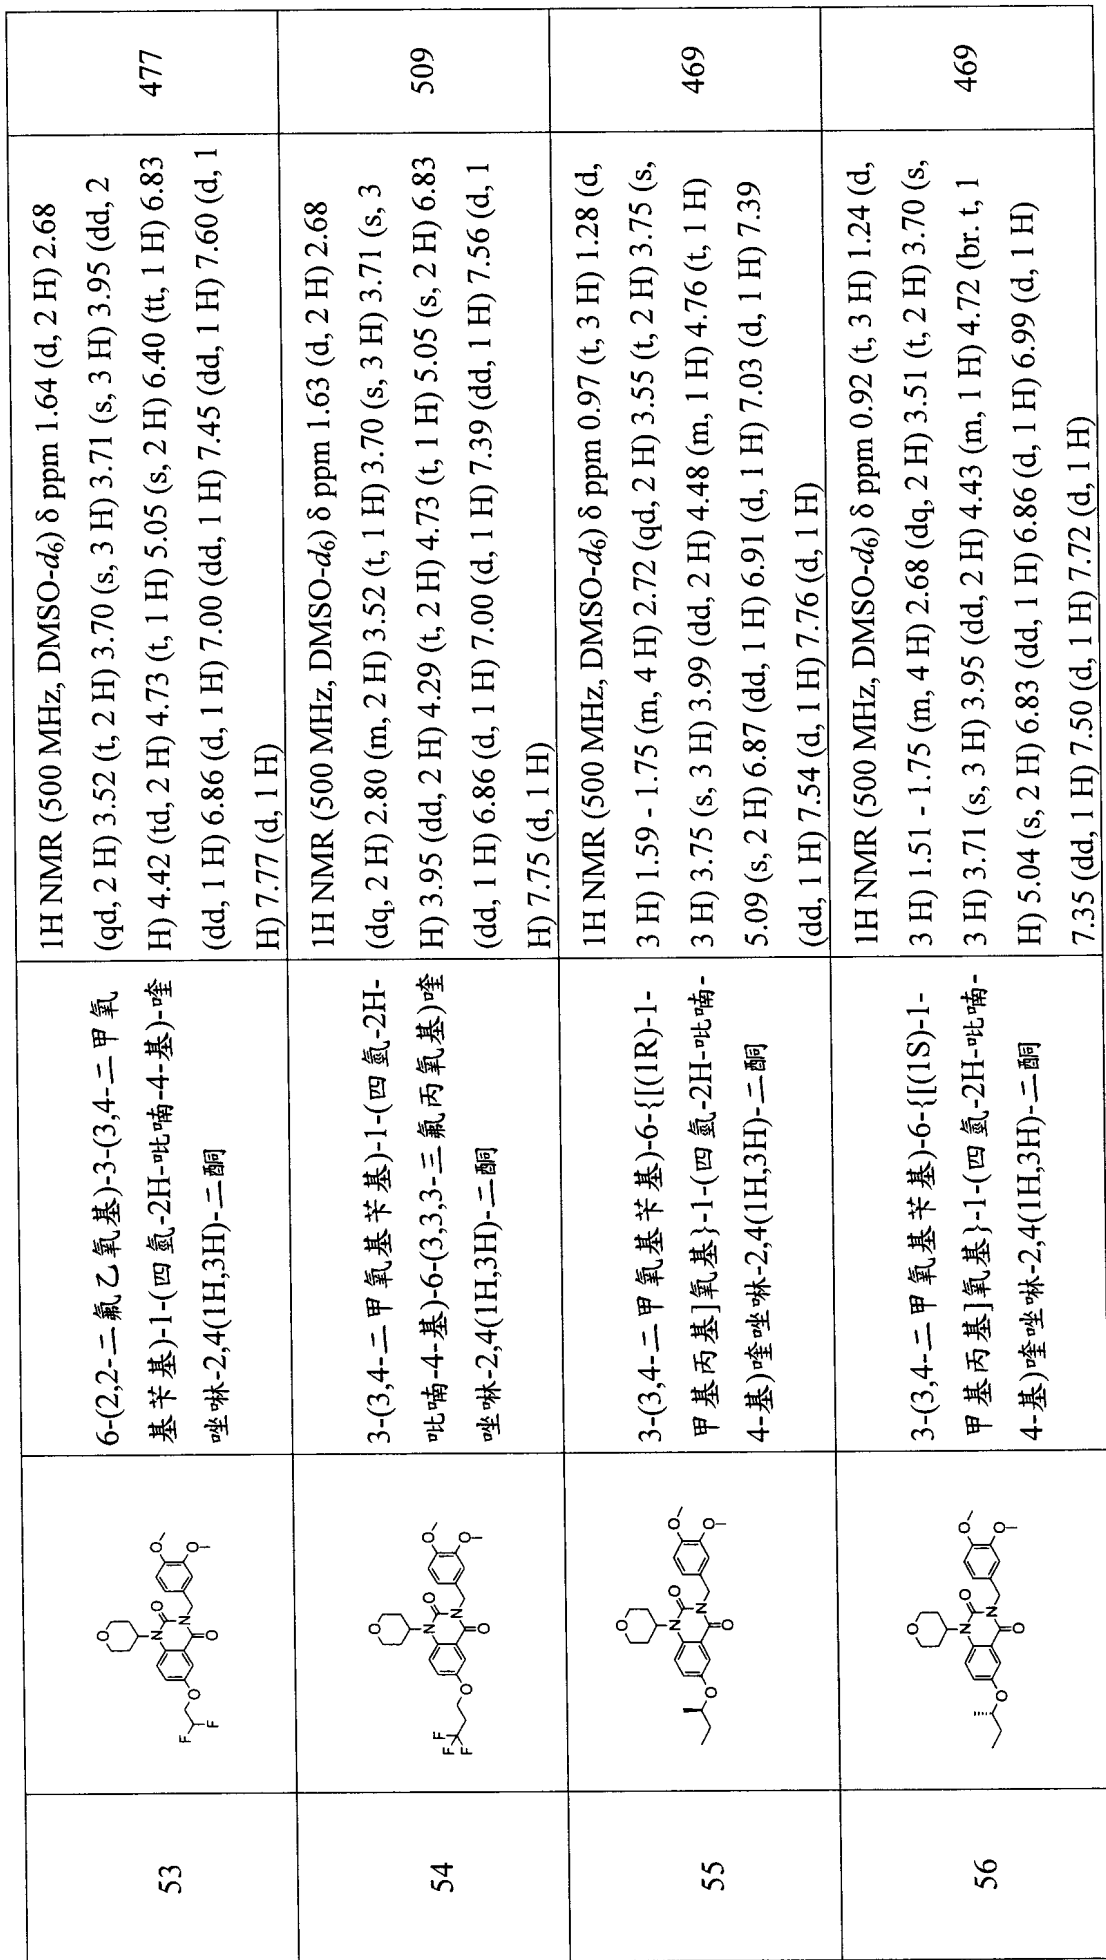 53
6-(2,2-二氟乙氧基)-3-(3,4-二甲氧
基苄基)-1-(四氫-2H-吡喃-4-基)-喹
唑啉-2,4(1H,3H)-二酮
1H NMR (500 MHz, DMSO-d6) δ ppm 1.64 (d, 2 H) 2.68
(qd, 2 H) 3.52 (t, 2 H) 3.70 (s, 3 H) 3.71 (s, 3 H) 3.95 (dd, 2
H) 4.42 (td, 2 H) 4.73 (t, 1 H) 5.05 (s, 2 H) 6.40 (tt, 1 H) 6.83
(dd, 1 H) 6.86 (d, 1 H) 7.00 (dd, 1 H) 7.45 (dd, 1 H) 7.60 (d, 1
H) 7.77 (d, 1 H)
477
54
3-(3,4-二甲氧基苄基)-1-(四氫-2H-
吡喃-4-基)-6-(3,3,3-三氟丙氧基)喹
唑啉-2,4(1H,3H)-二酮
1H NMR (500 MHz, DMSO-d6) δ ppm 1.63 (d, 2 H) 2.68
(dq, 2 H) 2.80 (m, 2 H) 3.52 (t, 1 H) 3.70 (s, 3 H) 3.71 (s, 3
H) 3.95 (dd, 2 H) 4.29 (t, 2 H) 4.73 (t, 1 H) 5.05 (s, 2 H) 6.83
(dd, 1 H) 6.86 (d, 1 H) 7.00 (d, 1 H) 7.39 (dd, 1 H) 7.56 (d, 1
H) 7.75 (d, 1 H)
509
55
3-(3,4-二甲氧基苄基)-6-{[(1R)-1-
甲基丙基]氧基}-1-(四氫-2H-吡喃-
4-基)喹唑啉-2,4(1H,3H)-二酮
1H NMR (500 MHz, DMSO-d6) δ ppm 0.97 (t, 3 H) 1.28 (d,
3 H) 1.59 - 1.75 (m, 4 H) 2.72 (qd, 2 H) 3.55 (t, 2 H) 3.75 (s,
3 H) 3.75 (s, 3 H) 3.99 (dd, 2 H) 4.48 (m, 1 H) 4.76 (t, 1 H)
5.09 (s, 2 H) 6.87 (dd, 1 H) 6.91 (d, 1 H) 7.03 (d, 1 H) 7.39
(dd, 1 H) 7.54 (d, 1 H) 7.76 (d, 1 H)
469
56
3-(3,4-二甲氧基苄基)-6-{[(1S)-1-
甲基丙基]氧基}-1-(四氫-2H-吡喃-
4-基)喹唑啉-2,4(1H,3H)-二酮
1H NMR (500 MHz, DMSO-d6) δ ppm 0.92 (t, 3 H) 1.24 (d,
3 H) 1.51 - 1.75 (m, 4 H) 2.68 (dq, 2 H) 3.51 (t, 2 H) 3.70 (s,
3 H) 3.71 (s, 3 H) 3.95 (dd, 2 H) 4.43 (m, 1 H) 4.72 (br. t, 1
H) 5.04 (s, 2 H) 6.83 (dd, 1 H) 6.86 (d, 1 H) 6.99 (d, 1 H)
7.35 (dd, 1 H) 7.50 (d, 1 H) 7.72 (d, 1 H)
469